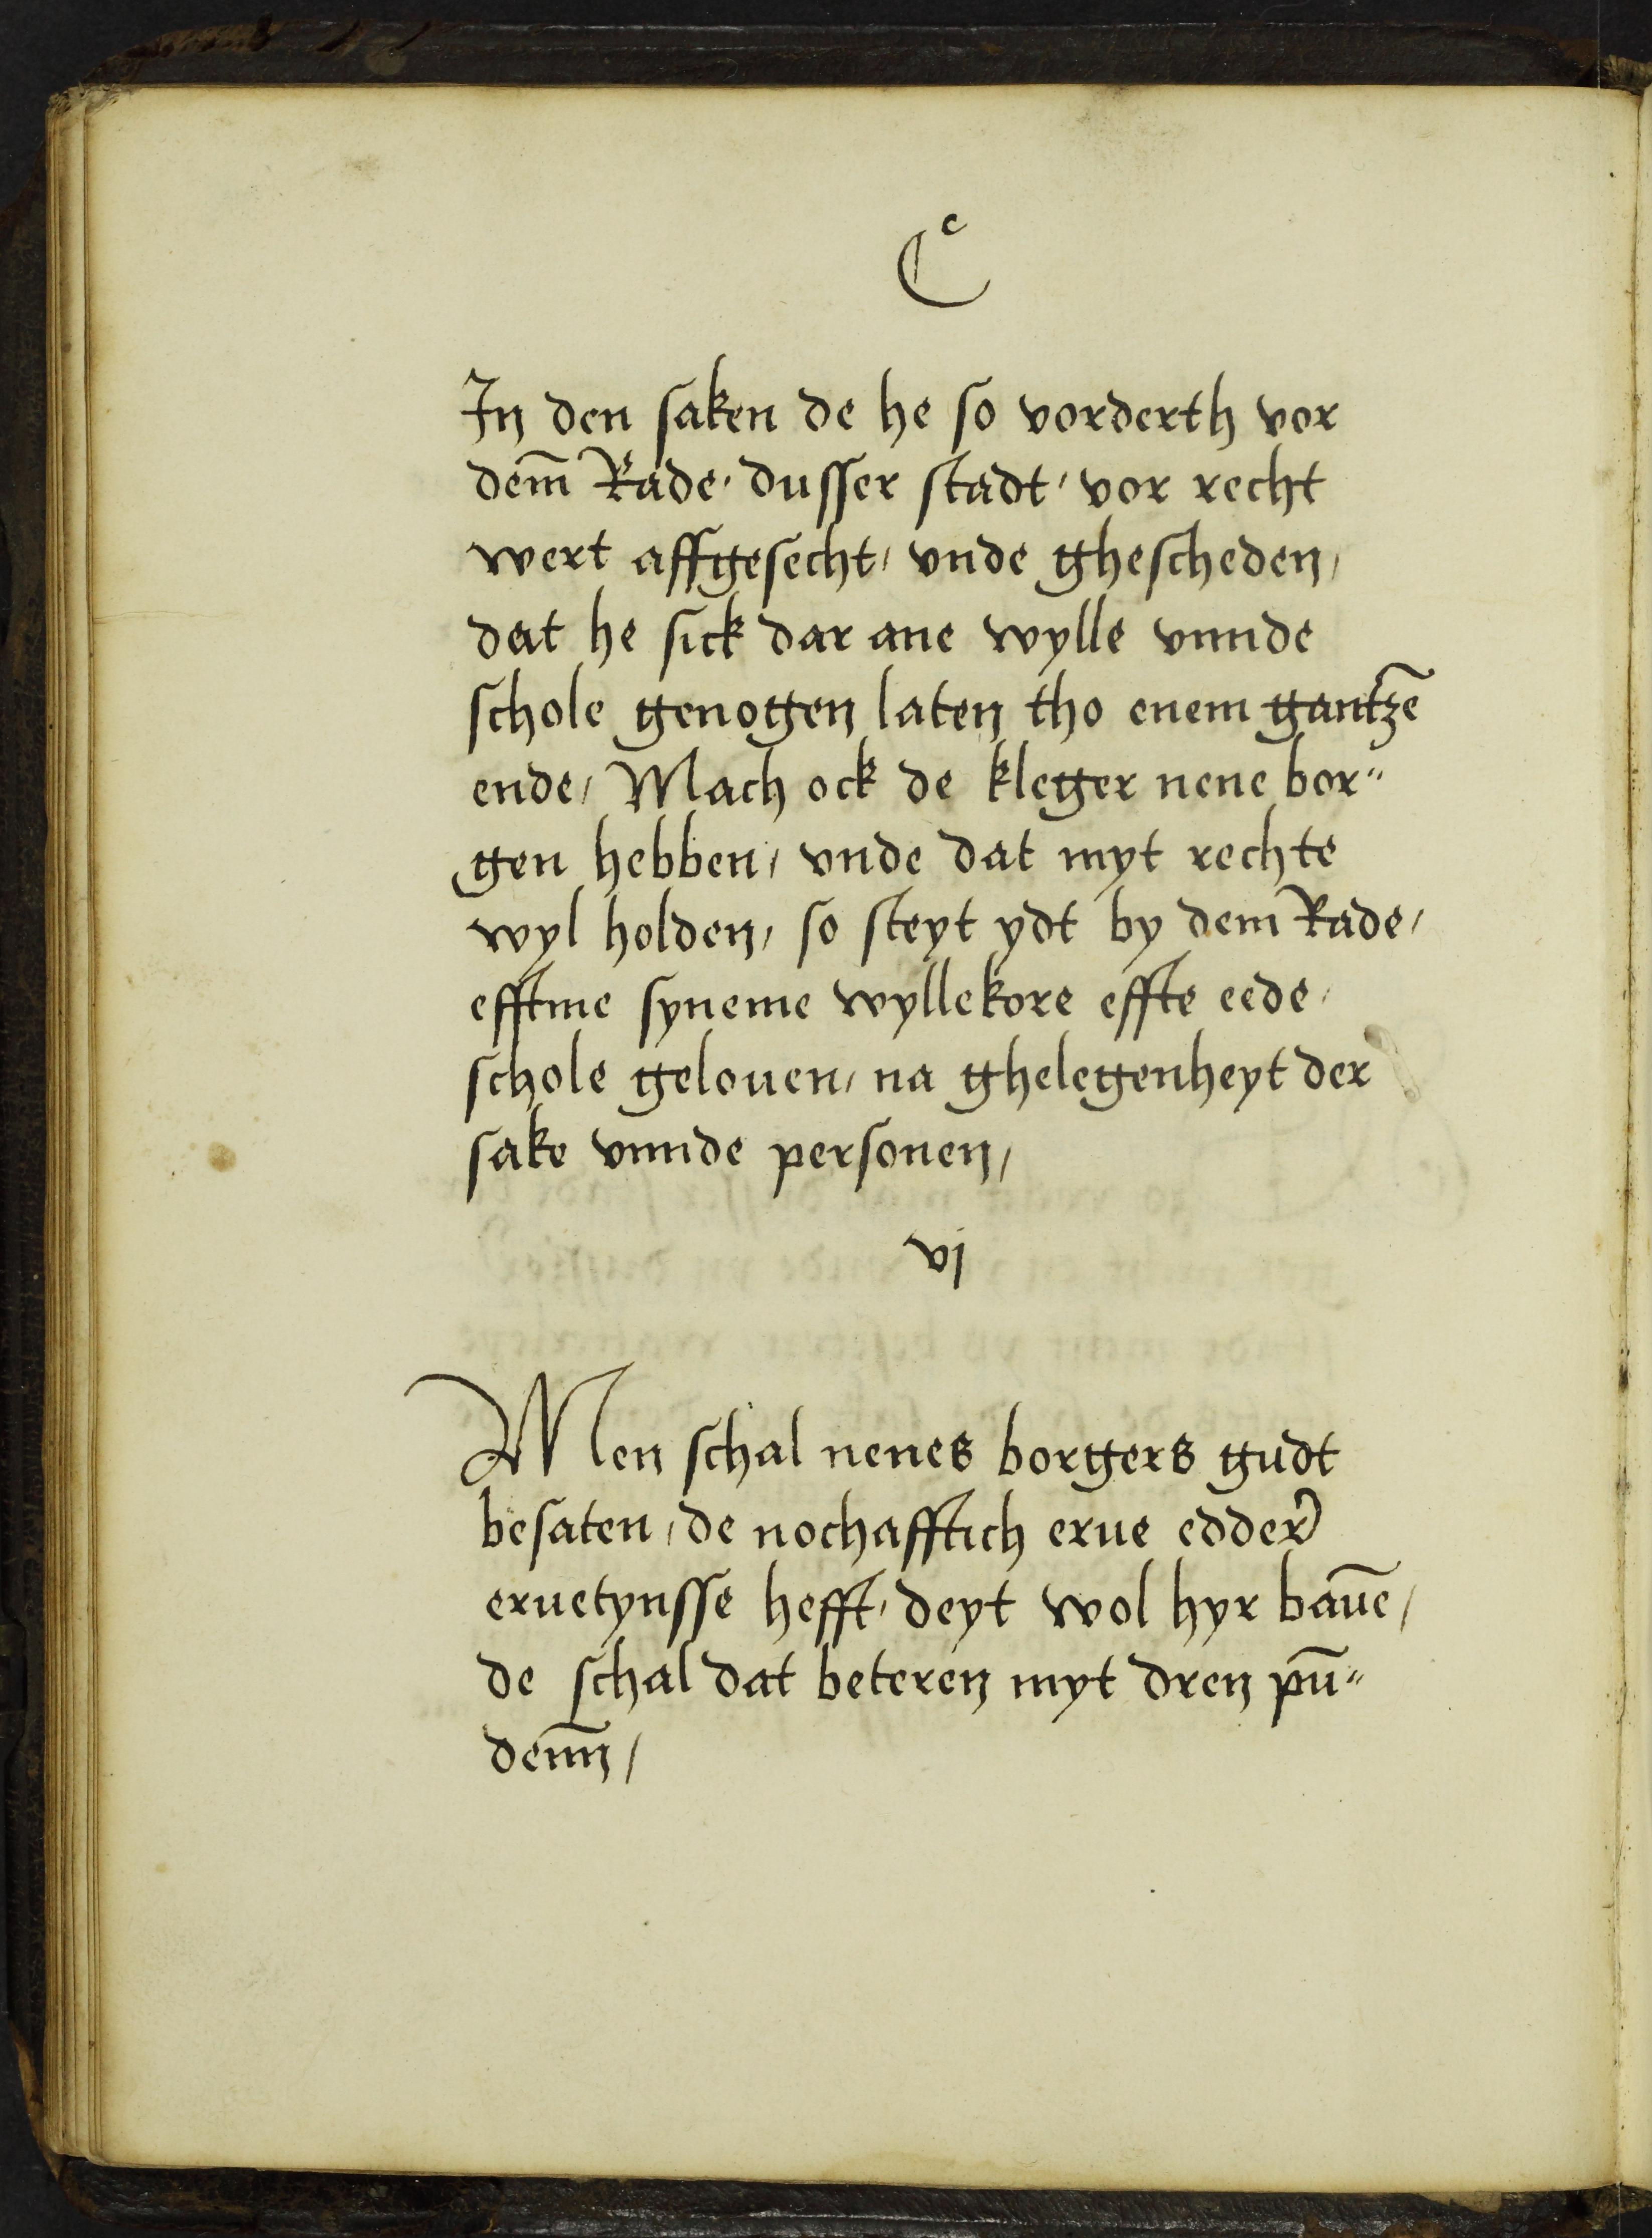 C
In den saken de he so vorderth vor
dem̄ Rade, dusser stadt, vor recht
wert affgesecht, vnde ghescheden,
dat he sick dar ane wylle vnnde
schole genogen laten tho enem gantzē
ende, Mach ock de kleger nene bor"
gen hebben, vnde dat myt rechte
wyl holden, so steyt ydt by dem Rade,
efftme syneme wyllekore effte eede,
schole gelouen, na ghelegenheyt der
sake vnnde personen,
vj
Men schal nenes borgers gudt
besaten, de nochafftich erue edder
eruetynsse hefft, deyt wol hyr bauē,
de schal dat beteren myt dren pū"
denn̄,